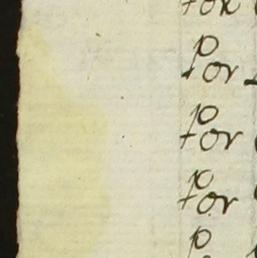 for
Por
Por
Por
P